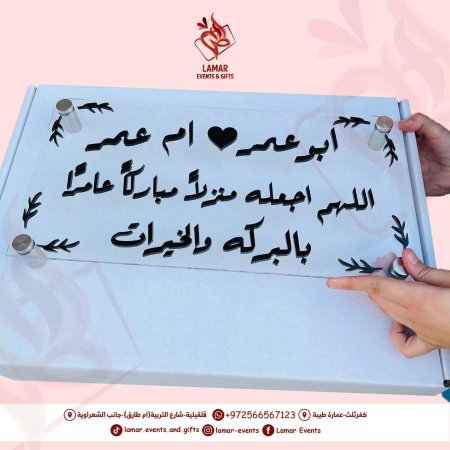 LAMAR
EVENTS & GIFTS
ابو عمر ام عمر
اللهم اجعله منزلاً مباركاً عامرًا
بالبركه والخيرات
كفرثلث-عمارة طيبة
قلقيلية-شارع التربية(ام طارق)-جانب الشعراوية
+972566567123
lamar.events.and.gifts
lamar-events
Lamar Events